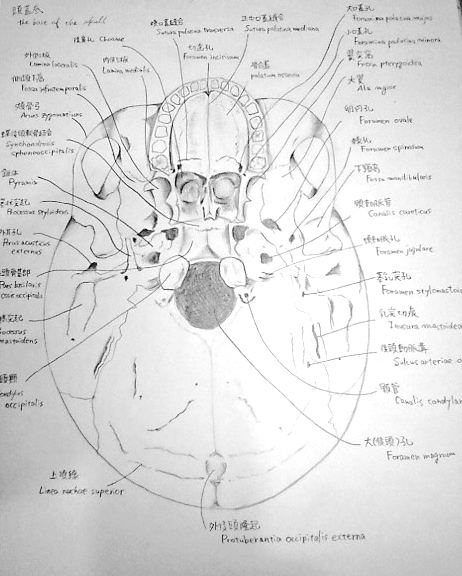 頭蓋底
the base of the skull
後鼻孔 Choanae
外側板
Lamina lateralis
側頭下窩
Fossa infratemporalis
頬骨弓
Arcus zygomaticus
蝶後頭軟骨結合
Synchondrosis
sphenooccipitalis
錐体
Pyramis
茎状突起
Processus styloideus
外耳孔
Porus acusticus
externus
mastoideus
occipitalis
上項線
Linea nuchae superior
横口蓋縫合
Sutura palatina transversa
切歯孔
Foramen incisivum
内側板
Lamina medialis
正中口蓋縫合
Sutura palatina mediana
骨口蓋
palatum osseum
大口蓋孔
Foramina palatina majus
小口蓋孔
Foramina palatina minora
翼突窩
Fossa pterygoidea
大翼
Ala major
卵円孔
Foramen ovale
棘孔
Foramen spinosum
下顎窩
Fossa mandibularis
頸動脈管
Canalis caroticus
Foramen jugulare
茎乳突孔
Foramen stylomastoi
乳突切痕
Incisura mastoidea
後頭動脈溝
Sulcus arteriae o
顆管
Canalis condylar
大(後頭)孔
Foramen magnum
外後頭隆起
Protuberantia occipitalis externa